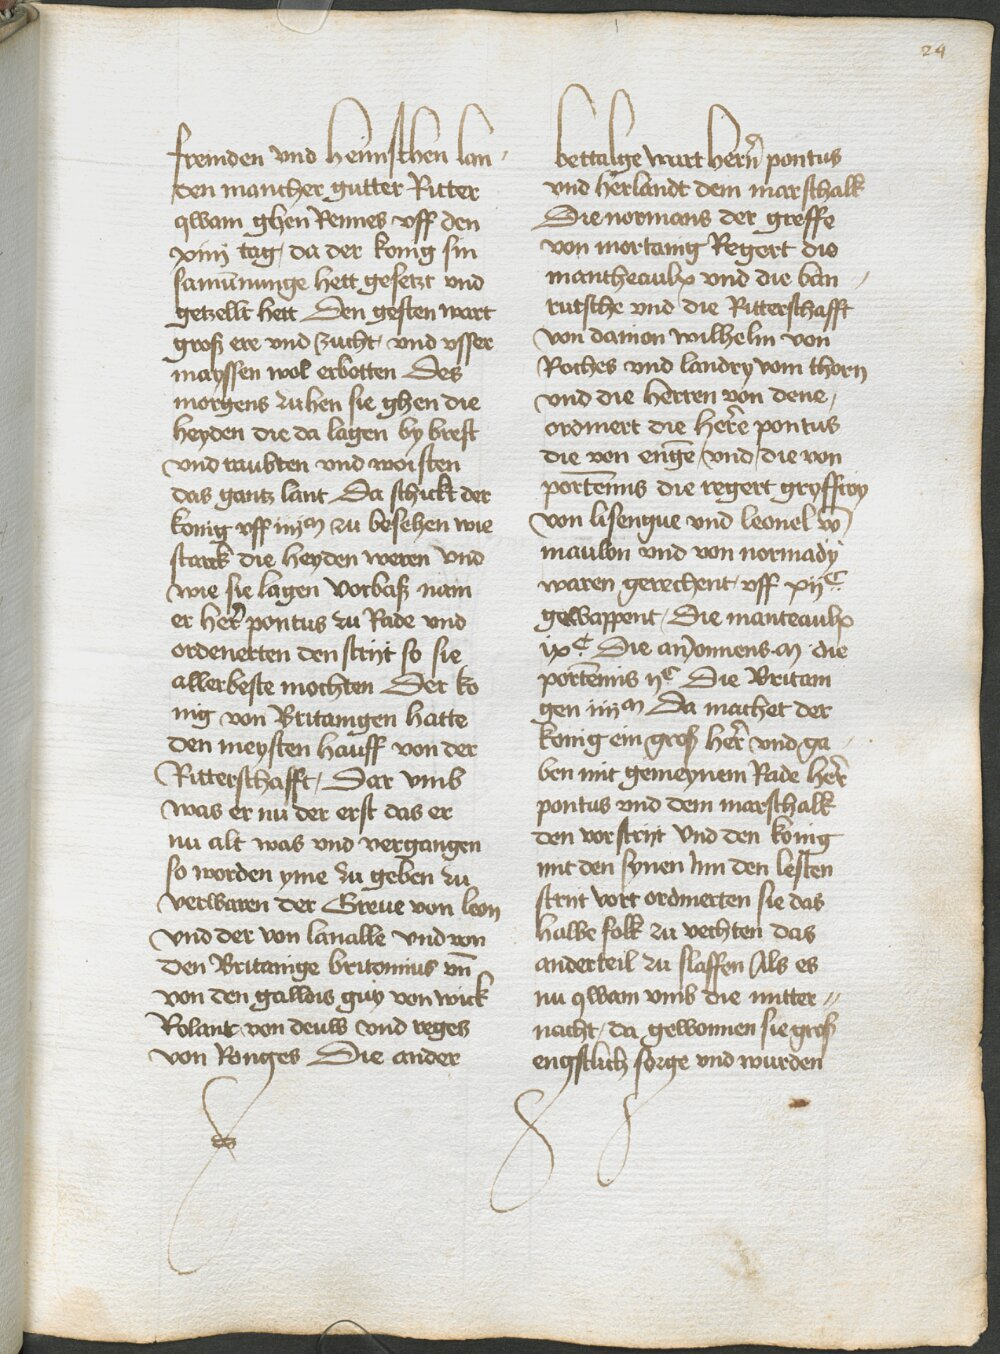 24
fremden vnd heimschen lan-
den mancher gutter Ritter
qwam ghen Rennes vff den
xiiij tag, da der konig sin
samūnunge hett gesetzt vnd
getzellt hett Den gesten wart
groß ere vnd zucht, vnd vsser
mayssen wol erbotten Des
morgens zuhen sie ghen die
heyden die da lagen by brest
vnd raubten vnd woisten
das gantz lant Da schickt der
konig vff iiijm zu besehen wie
starck die heyden weren vnd
wie sie lagen Vorbaß nam
er her̄ pontus zu Rade vnd
ordenerten den strijt so sie
allerbeste mochten Der ko
nig von Britanigen hatte
den meysten hauff von der
Ritterschafft, Dar vmb
was er nu der erst das er
nu alt was vnd vergangen
so worden yme zu geben zu
verwaren der Greue von leon
vnd der von lanalle vnd von
den Britanige britonius vn̄
von den galldis guy von wick
Rolant von deuws vnd reges
von Ronges Die ander
bettalge wart hern̄ pontus
vnd herlandt dem marschalk
Die normans der greffe
von mortanig Regert die
mantheaulx vnd die ban-
rutsche vnd die Ritterschafft
von damon wilhelm von
Roches vnd landry vom thorn
vnd die herren von dene,
ordiniert die her̄e pontus
die von enge, vnd die von
portēnis die regert gryffroy
von lisengue vnd leonel vō
maulon vnd von normady
waren gerechent, vff xijC
gewappent, Die manteaulx
ixC Die anyonnens m die
portēnis ijC Die Britani
gen iiijm Da machet der
konig ein groß her̄ vnd ga-
ben mit gemeynem Rade her̄
pontus vnd dem marschalk
den vorstrijt Vnd den konig
mit den synen Inn den lesten
strijt vort ordinierten sie das
halbe folk zu vechten das
anderteil zu slaffen Als es
nu qwam vmb die mitter-
nacht, da gewonnen sie groß
engstlich sorge vnd wurden